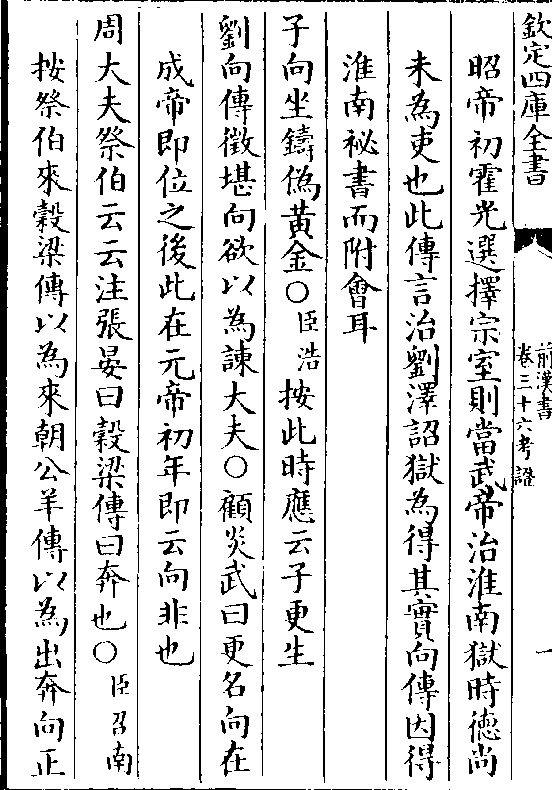 欽定四庫全書
前漢書
卷三十六考證
一
昭帝初霍光選擇宗室則當武帝治淮南獄時德尚
未為吏也此傳言治劉澤詔獄為得其實向傳因得
淮南祕書而附會耳
子向坐鑄偽黃金○臣浩按此時應云子更生
劉向傳徵堪向欲以為諫大夫○顧炎武曰更名向在
成帝即位之後此在元帝初年即云向非也
周大夫祭伯云云注張晏曰穀梁傳曰奔也○臣召南
按祭伯來穀梁傳以為來朝公羊傳以為出奔向正